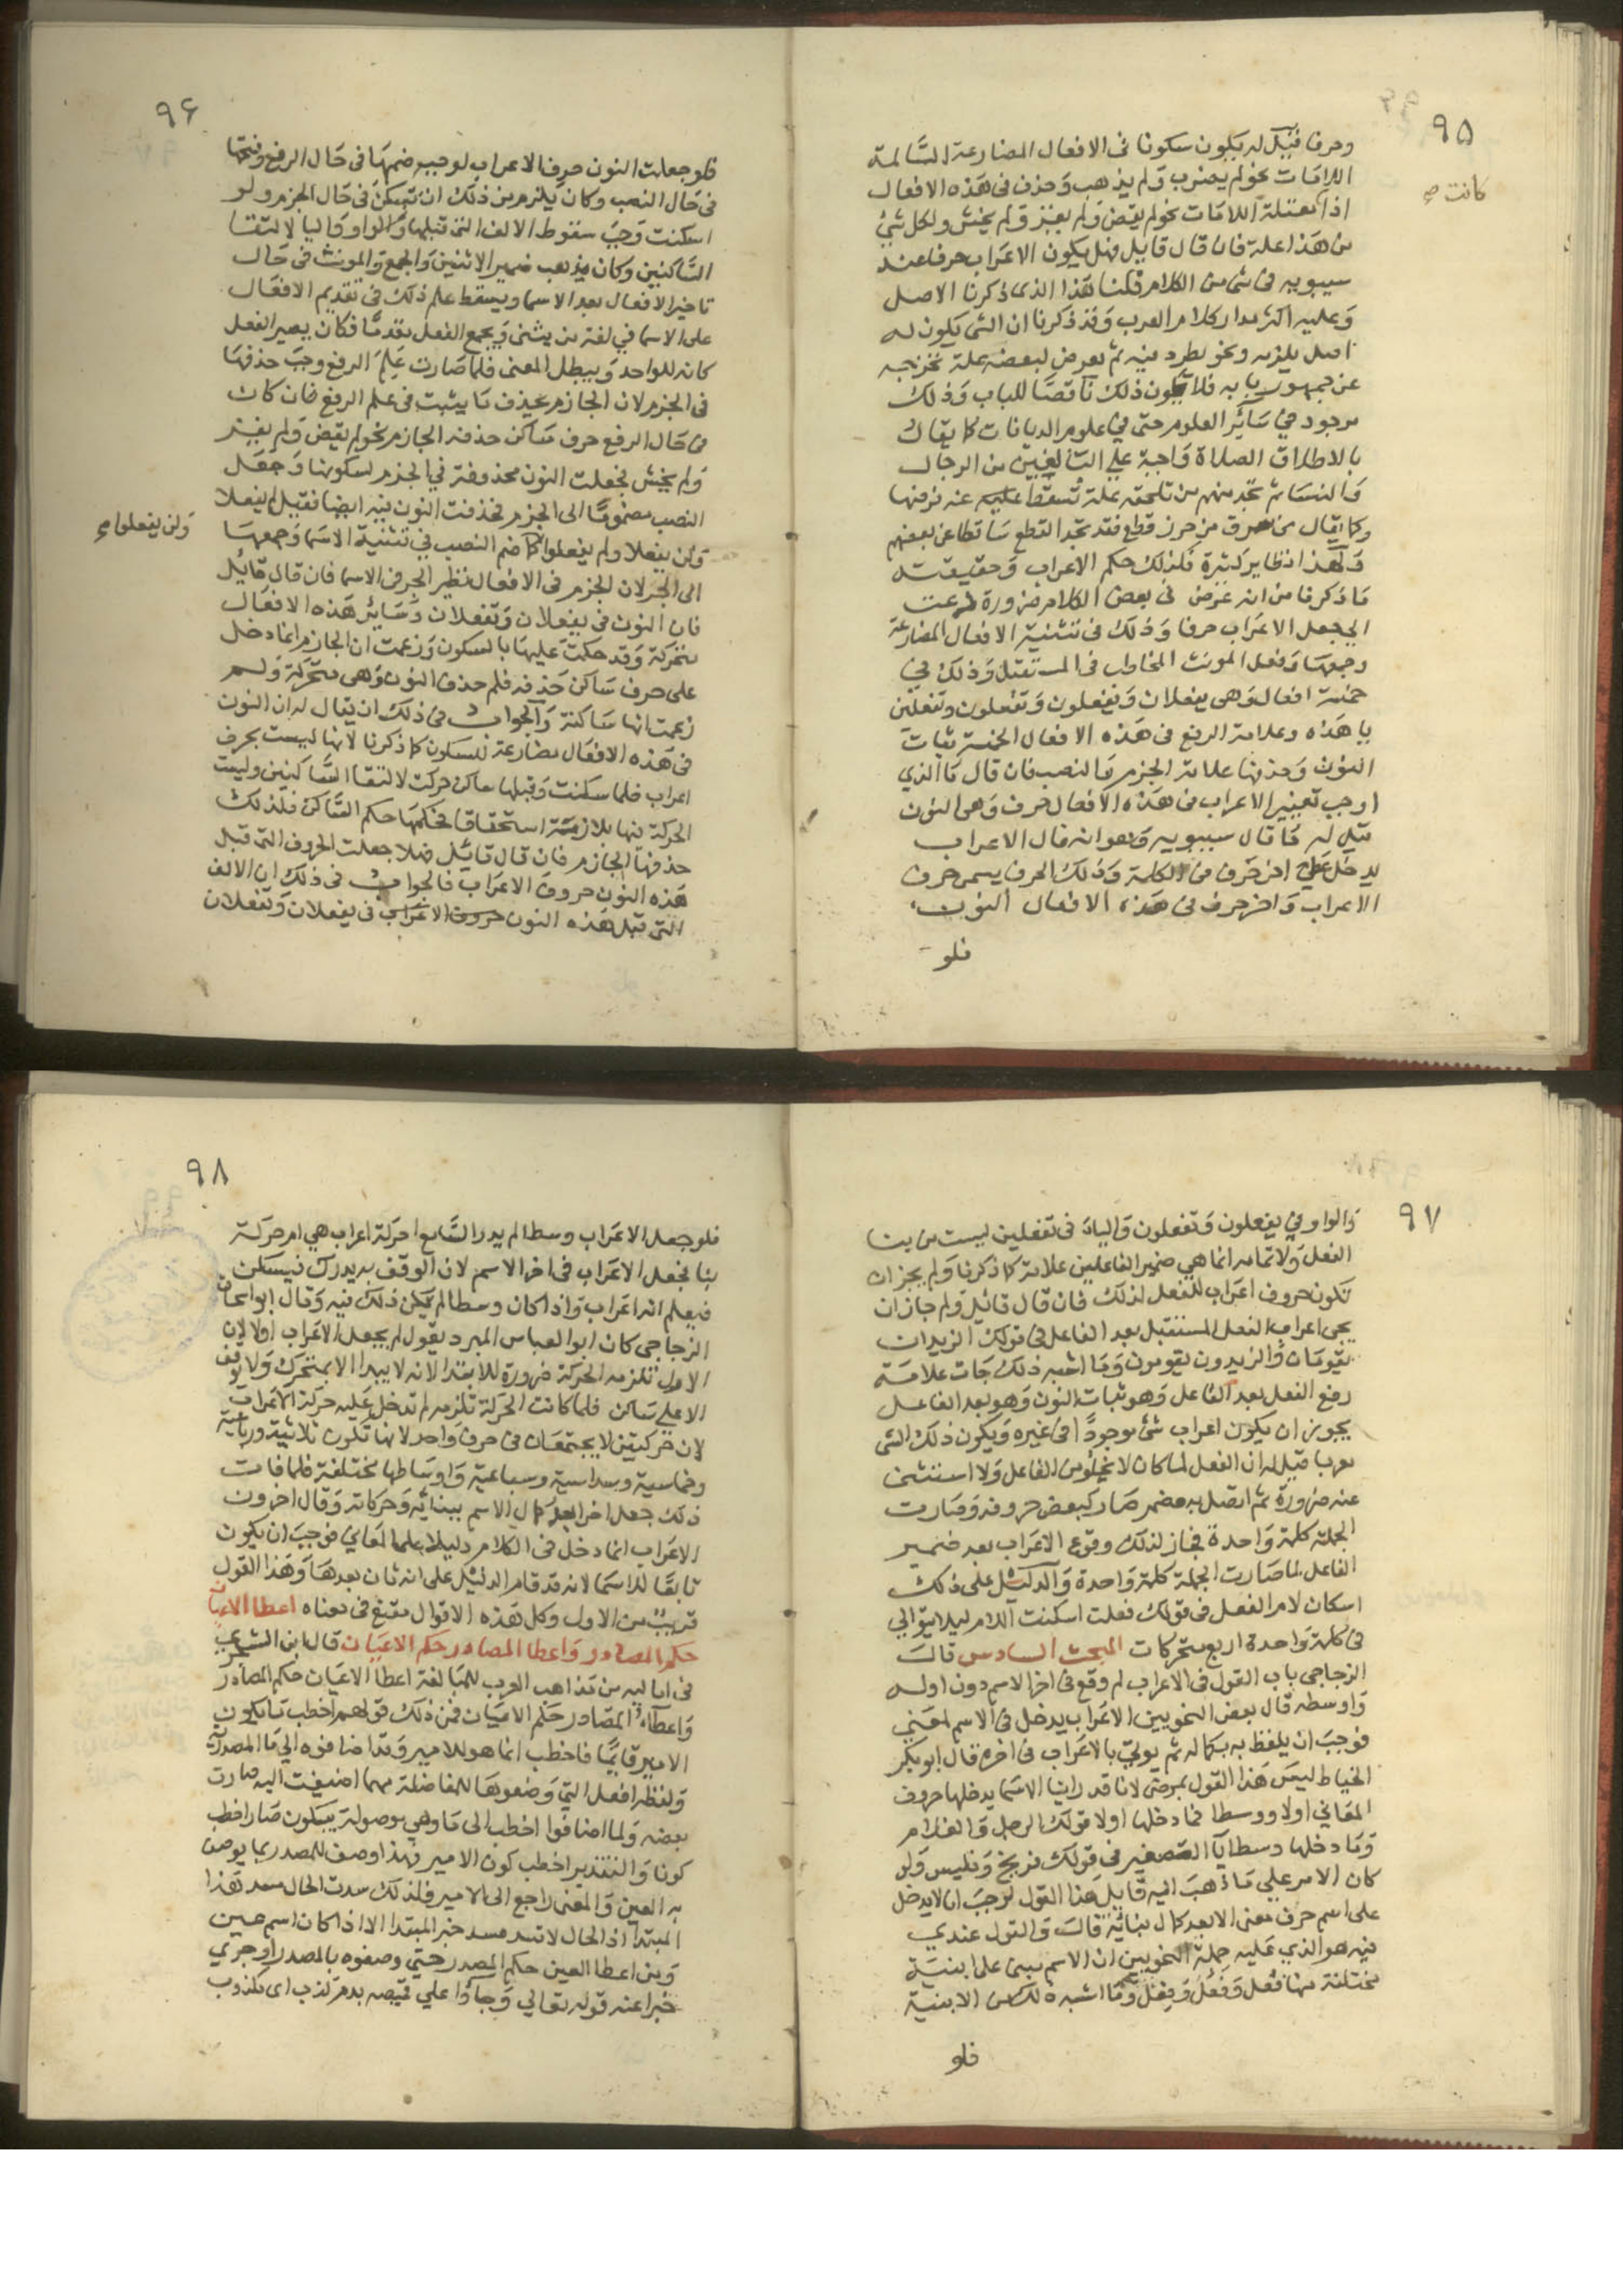 ٩٥
وحرفا فقيل له يكون سكونا فى الافعال المضارعة السالمة
اللامات نحو لم يضرب ولم يذهب وحذف فى هذه الافعال
كانت صح
اذا معتلة اللامات نحو لم يقض ولم يغز ولم يخش ولكل شئ
من هذا علة فان قال قايل فهل يكون الاعراب حرفا عند
سيبويه فى شئ من الكلام قلنا هذا الذى ذكرنا الاصل
وعليه اكثر مدار كلام العرب وقد ذكرنا ان الشى يكون له
اصل يلزمه ونحو يطرد فيه ثم يعرض لبعضه علة تخرجه
عن جمهور بابه فلا يكون ذلك ناقصا للباب وذلك
موجود فى سائر العلوم حتى فى علوم الديانات كما يقال
بالاطلاق الصلاة واجبة على البالغين من الرجال
والنسا ثم تجد منهم من تلحقه علة تسقط عليه عنه فرضها
وكما يقال من سرق من حرز قطع فقد تجد القطع ساقطا عن بعضهم
ولهذا نظاير كثيرة فكذلك حكم الاعراب وحقيقته
ما ذكرنا من انه عرض فى بعض الكلام ضرورة دعت
الى جعل الاعراب حرفا وذلك فى تثنية الافعال المضارعة
وجمعها وفعل المونث المخاطب فى المستقبل وذلك فى
خمسة افعال وهى يفعلان وتفعلان ويفعلون وتفعلون وتفعلين
يا هذه وعلامة الرفع فى هذه الافعال الخمسة ثبات
النون وحذفها علامة الجزم والنصب فان قال ما الذي
اوجب تغيير الاعراب فى هذه الافعال حرف وهى النون
قيل له ما قال سيبويه وهو انه قال الاعراب
يدخل على اخر حرف من الكلمة وذلك الحرف يسمى حرف
الاعراب واخر حرف فى هذه الافعال النون
فلو
٩٦
فلو جعلت النون حرف الاعراب لوجب ضمها فى حال الرفع وفتحها
فى حال النصب وكان يلزم من ذلك ان تسكن فى حال الجزم ولو
اسكنت وجب سقوط الالف التى قبلها والواو واليا لالتقا
الساكنين وكان يذهب ضمير الاثنين والجمع والمونث فى حال
تاخير الافعال بعد الاسما ويسقط علم ذلك فى تقديم الافعال
على الاسما فى لغة من يثنى ويجمع الفعل مقدما فكان يصير الفعل
كانه للواحد ويبطل المعنى فلما صارت علم الرفع وجب حذفها
فى الجزم لان الجازم يحذف ما يثبت فى علم الرفع فان كان
فى حال الرفع حرف ساكن حذفه الجازم نحو لم يقض ولم يغز
ولم يخش فجعلت النون محذوفة فى الجزم لسكونها وجعل
النصب مضموما الى الجزم فحذفت النون فيه ايضا فقيل لم يفعلا
ولن يفعلا ولم يفعلوا كما ضم النصب فى تثنية الاسما وجمعها
ولن يفعلوا صح
الى الجر لان الجزم فى الافعال نظير الجر فى الاسما فان قال قائل
فان النون فى يفعلان وتفعلان وسائر هذه الافعال
متحركة وقد حكمت عليها بالسكون وزعمت ان الجازم اذا دخل
على حرف ساكن حذفه فلم حذف النون وهى متحركة ولم
زعمت انها ساكنة والجواب فى ذلك ان يقال له ان النون
فى هذه الافعال مضارعة للسكون كما ذكرنا لانها ليست بحرف
اعراب فلما سكنت وقبلها ساكن حركت لالتقا الساكنين وليست
الحركة فيها بلازمة استحقاقا فحكمها حكم الساكن فلذلك
حذفها الجازم فان قال قائل فهلا جعلت الحروف التى قبل
هذه النون حروف الاعراب فالجواب فى ذلك ان الالف
التى قبل هذه النون حروف الاعراب فى يفعلان وتفعلان
٩٧
والواو فى يفعلون وتفعلون والياء فى تفعلين ليست من بنا
الفعل ولا تمامه انما هى ضمير الفاعلين علامة كما ذكرنا ولم يجز ان
تكون حروف اعراب للفعل لذلك فان قال قائل ولم جاز ان
يجى اعراب الفعل المستقبل بعد الفاعل فى قولك الزيدان
يقومان والزيدون يقومون وما اشبه ذلك جات علامة
رفع الفعل بعد الفاعل وهو ثبات النون وهو بعد الفاعل
يجوز ان يكون اعراب شئ موجودا فى غيره ويكون ذلك الشى
معربا قيل له ان الفعل لما كان لا يخلو من الفاعل ولا استغنى
عنه ضرورة ثم اتصل به مضمر صار كبعض حروفه وصارت
الجملة كلمة واحدة فجاز لذلك وقوع الاعراب بعد ضمير
الفاعل لما صارت الجملة كلمة واحدة والدليل على ذلك
اسكان لام الفعل فى قولك فعلت اسكنت اللام ليلا يتوالى
فى كلمة واحدة اربع متحركات المبحث السادس قال
الزجاجى باب القول فى الاعراب لم وقع فى اخر الاسم دون اوله
واوسطه قال بعض النحويين الاعراب يدخل فى الاسم لمعنى
فوجب ان يلفظ به بكماله ثم يوتى بالاعراب فى اخره قال ابو بكر
الخياط ليس هذا القول بمرضى لانا قد راينا الاسما يدخلها حروف
المعانى اولا ووسطا فما دخلها اولا قولك الرجل والغلام
وما دخلها وسطا يا التصغير فى قولك فريخ وفليس ولو
كان الامر على ما ذهب اليه قايل هذا القول لوجب ان لا يدخل
على اسم حرف معنى الا بعد كمال بنائه قال والقول عندي
فيه هو الذي عليه جملة النحويين ان الاسم يبنى على ابنية
مختلفة منها فعل وفعل وفعل وما اشبه ذلك من الابنية
فلو
٩٨
فلو جعل الاعراب وسطا لم يدر السامع احركة اعراب هى ام حركة
بنا فجعل الاعراب فى اخر الاسم لان الوقف يدركه فيسكن
فيعلم انه اعراب واذا كان وسطا لم يمكن ذلك فيه وقال ابو اسحاق
الزجاجى كان ابو العباس المبرد يقول لم يجعل الاعراب اولا لان
الاول تلزمه الحركة ضرورة للابتدا لانه لا يبدا الا بمتحرك ولا يوقف
الا على ساكن فلما كانت الحركة تلزمه لم تدخل عليه حركة الاعراب
لان حركتين لا يجتمعان فى حرف واحد لانها تكون ثلاثية ورباعية
وخماسية وسداسية وسباعية واوساطها مختلفة فلما فات
ذلك جعل اخرا بعد كمال الاسم ببنائه وحركاته وقال اخرون
الاعراب انما دخل فى الكلام دليلا على المعانى فوجب ان يكون
تابعا للاسما لانه قد قام الدليل على انه ثان بعدها وهذا القول
قريب من الاول وكل هذه الاقوال مقنع فى معناه اعطا الاعيان
حكم المصادر واعطا المصادر حكم الاعيان قال ابن الشجري
فى اماليه من مذاهب العرب للمبالغة اعطا الاعيان حكم المصادر
واعطاء المصادر حكم الاعيان فمن ذلك قولهم اخطب ما يكون
الامير قايما فاخطب انما هو للامير وقد اضافوه الى ما المصدرية
ولفظ افعل التى وضعوها للمفاضلة مهما اضيفت اليه صارت
بعضه ولما اضافوا اخطب الى ما وهى موصولة بيكون صار اخطب
كونا والتقدير اخطب كون الامير فهذا وصف للمصدر بما يوصف
به العين والمعنى راجع الى الامير فلذلك سدت الحال مسد هذا
المبتدا اذ الحال لا تسد مسد خبر المبتدا الا اذا كان اسم حدث
ومن اعطا العين حكم المصدر حتى وصفوه بالمصدر او جرى
خبرا عنه قوله تعالى وجاؤا على قميصه بدم كذب اى مكذوب